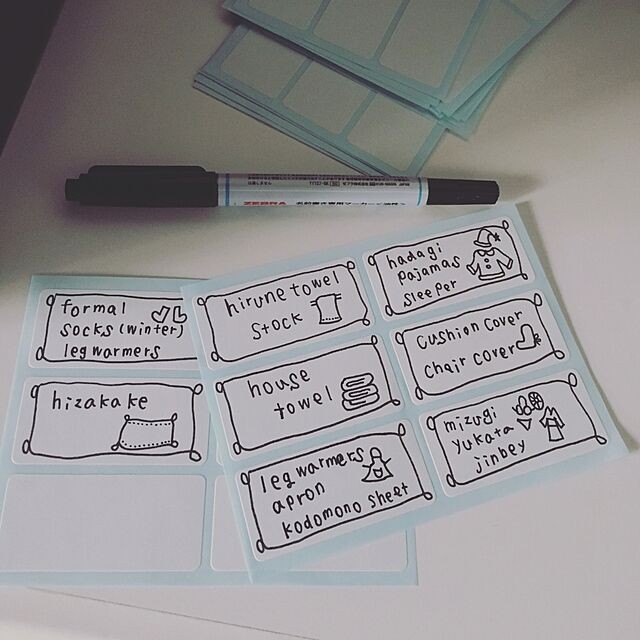 ZEBRA
formal
socks (winter)
leg warmers
hizakake
hirune towel
stock
house
towel
leg warmers
apron
kodomono sheet
hadagi
pajamas
sleeper
cushion cover
chair cover
mizugi
yukata
jinbey